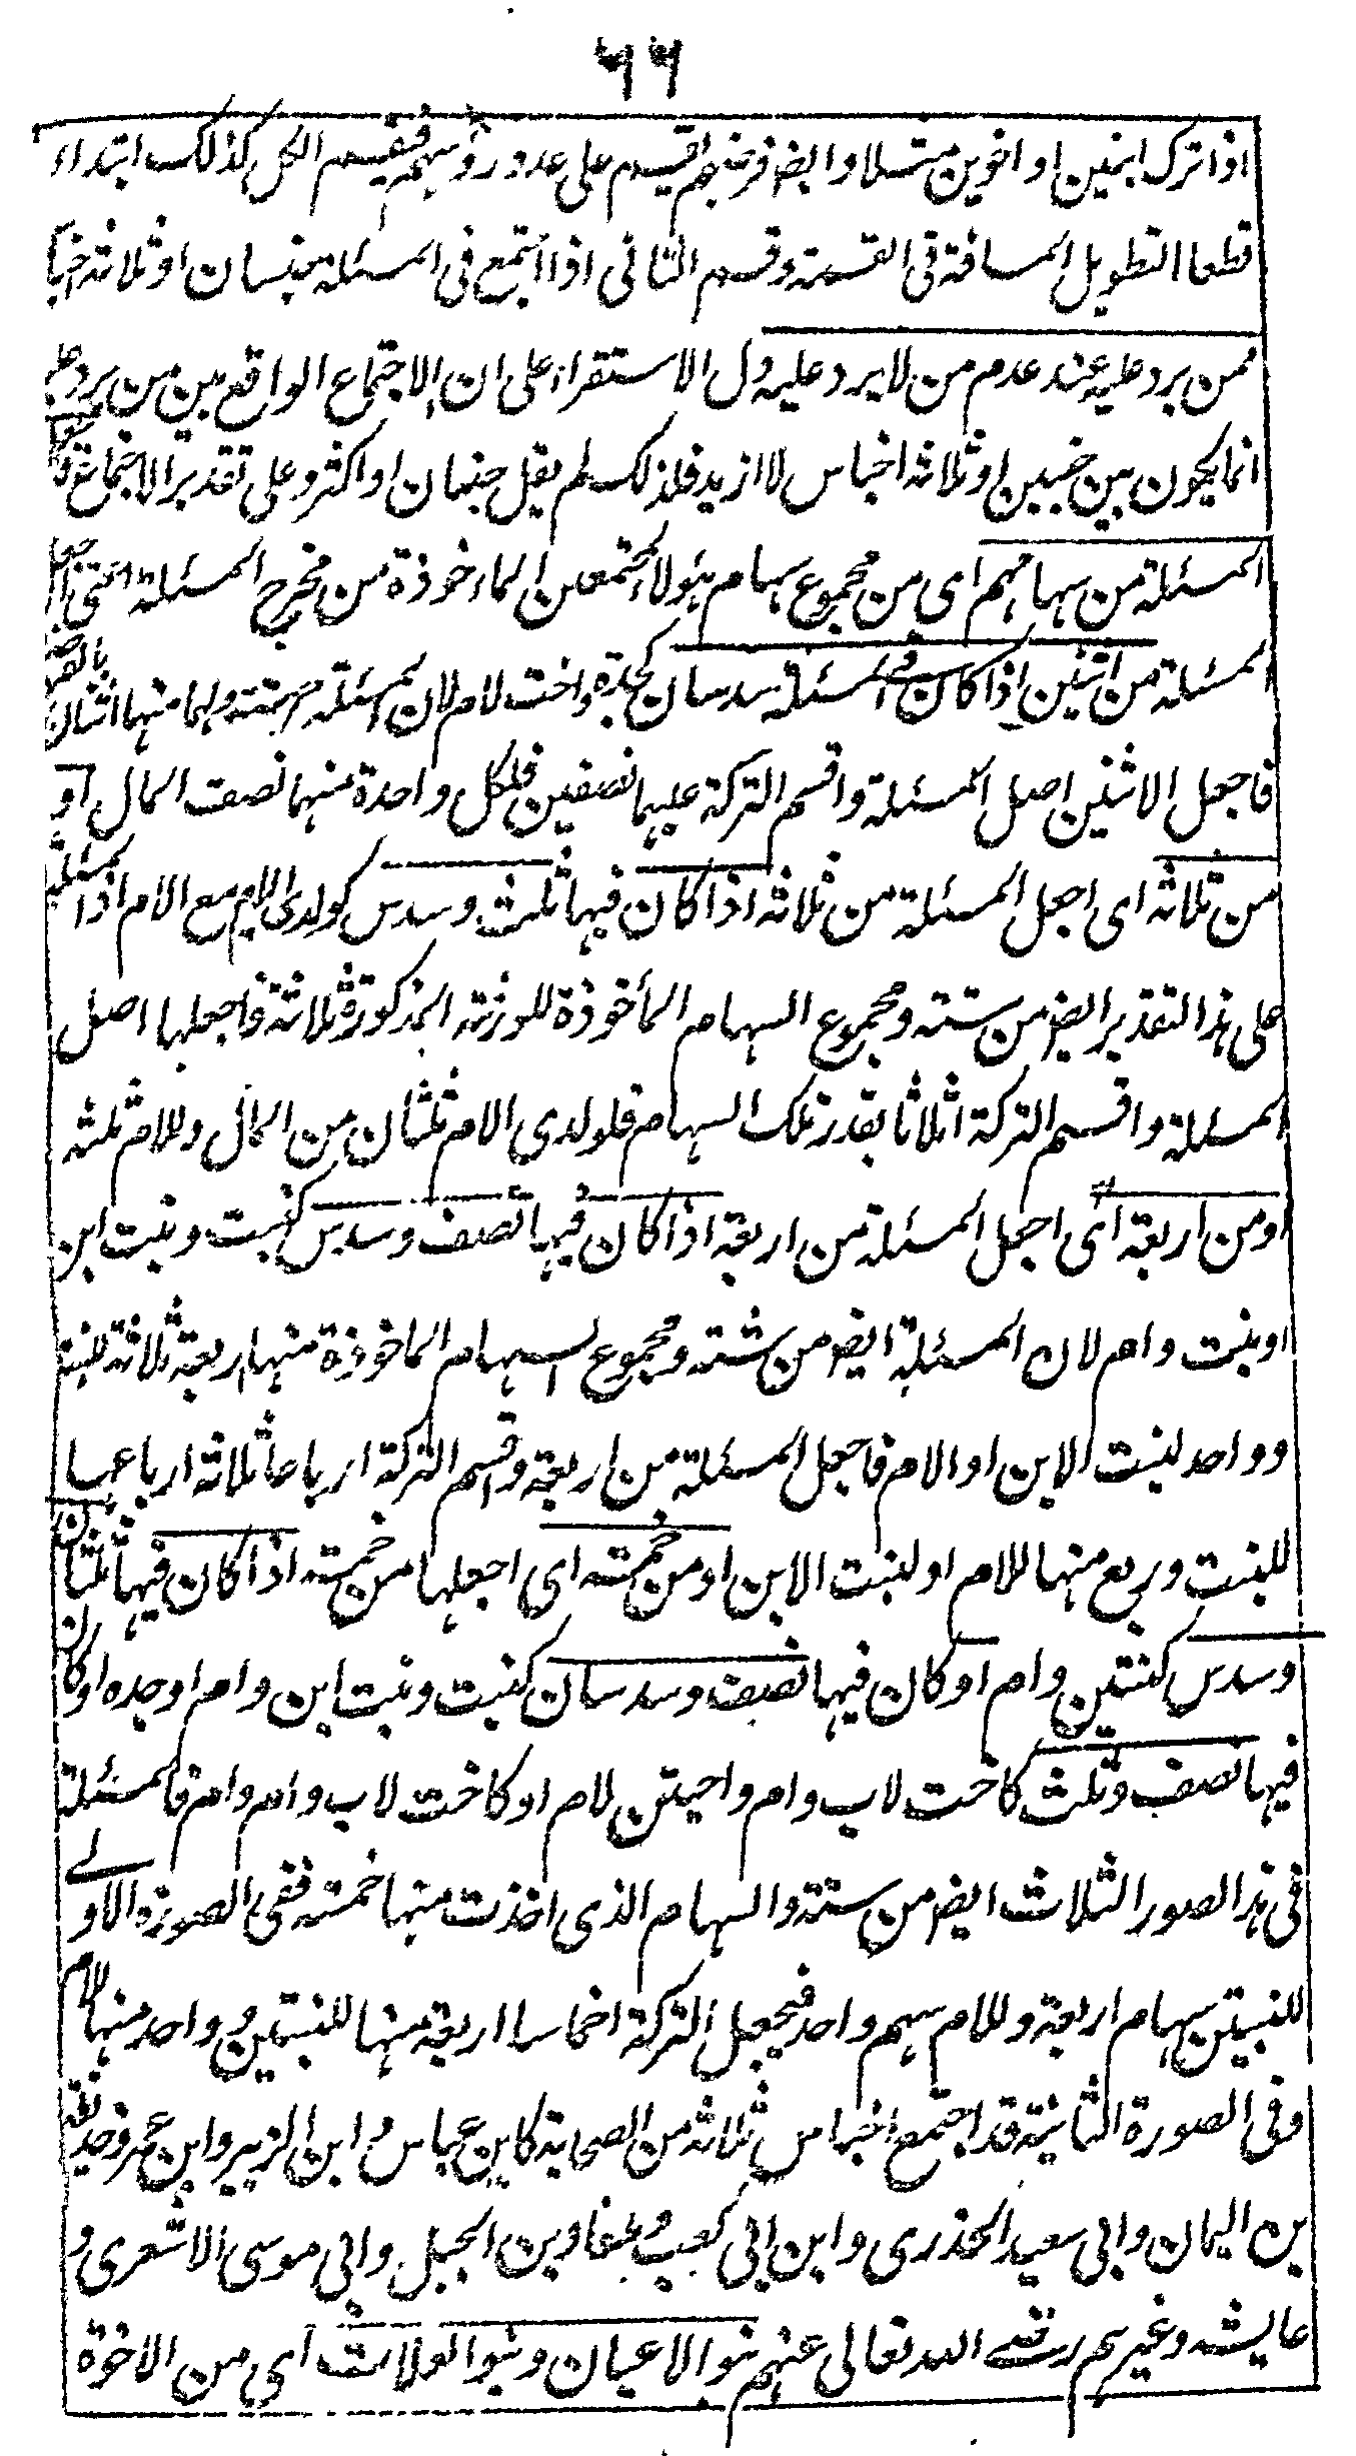 ٦٦
اذا ترك ابنين او اخوين مثلا وايض فرضهم اقيسم على عدد رؤسهم فيقسم الكل كذلك ابتداء
قطعا التطويل المسافة فى القسمة وقسم الثانى اذا اجتمع فى المسئلة جنسان او ثلاثة اجناس
ممن يرد عليه عند عدم من لا يرد عليه دل الاستقراء على ان الاجتماع الواقع بين من يرد عليه
انما يكون بين جنسين او ثلاثة اجناس لا ازيد فلذلك لم يقل جنسان او اكثر وعلى تقدير الاجتماع
المسئلة من سهامهم اى من مجموع سهام هؤلاء المجتمعين الماخوذة من مخرج المسئلة اعنى اجعل
المسئلة من اثنين اذا كان فى المسئلة سدسان كجدة واخت لام لان المسئلة من ستة ولهما منها اثنان بالفرض
فاجعل الاثنين اصل المسئلة واقسم التركة عليهما نصفين فلكل واحدة منهما نصف المال او
من ثلاثة اى اجعل المسئلة من ثلاثة اذا كان فيها ثلث وسدس كولدى الام مع الام اذا المسئلة
على هذا التقدير ايض من ستة ومجموع السهام المأخوذة للورثة المذكورة ثلاثة فاجعلها اصل
المسئلة واقسم التركة اثلاثا بقدر تلك السهام فلولدى الام ثلثان من المال وللام ثلثه
او من اربعة اى اجعل المسئلة من اربعة اذا كان فيها نصف وسدس كبنت وبنت ابن
او بنت وام لان المسئلة ايض من ستة ومجموع السهام الماخوذة منها اربعة ثلاثة للبنت
وواحد لبنت الابن او الام فاجعل المسئلة من اربعة واقسم التركة ارباعا ثلاثة ارباعها
للبنت وربع منها للام او لبنت الابن او من خمسة اى اجعلها من خمسة اذا كان فيها ثلثان
وسدس كبنتين وام او كان فيها نصف وسدسان كبنت وبنت ابن وام او جده او كان
فيها نصف وثلث كاخت لاب وام واختين لام او كاخت لاب وام وام فالمسئلة
فى هذا الصور الثلاث ايض من ستة والسهام الذى اخذت منها خمسة ففى الصورة الاولے
للبنتين سهام اربعة وللام سهم واحد فيجعل التركة اخماسا اربعة منها للبنتين وواحد منها للام
وفى الصورة الثانية قد اجتمع اجناس ثلاثة من الصحابة كابن عباس وابن الزبير وابن عمر وحذيفة
بن اليمان وابى سعيد الخدرى وابن ابى كعب ومعاذ بن الجبل وابى موسى الاشعرى و
عايشه وغيرهم رضے الله تعالى عنهم بنو الاعيان وبنو العلات اى من الاخوة